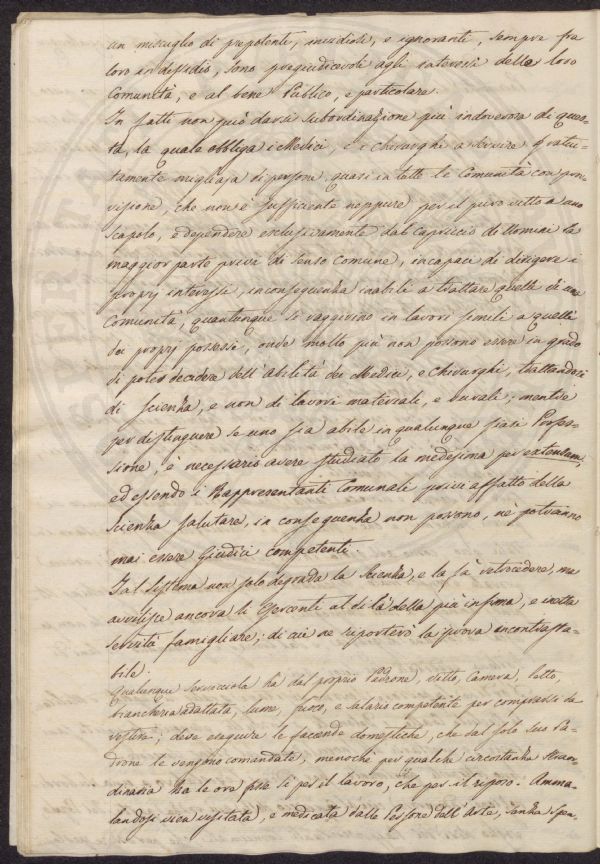 un miscuglio di prepotenti, invidiosi, e ignoranti, sempre fra
loro in dissidio, sono pregiudicevoli agli interessi della loro
Comunità, e al bene Publico, e particolare.
In fatti non può darsi subordinazione più indoverosa di ques-
ta, la quale obbliga i Medici, e i Chirurghi a servire gratui-
tamente migliaja di persone quasi in tutte le Comunità con prov-
visione, che non è sufficiente neppure per il puro vitto a uno
scapolo, e dependere esclusivamente dal Capriccio di Uomini la
maggior parte privi di senso comune, incapaci di dirigere i
proprj interessi, in conseguenza inabili a trattare quelli di una
Comunità, quantunque si raggirino in lavori simili a quelli
dei proprj possessi, onde molto più non possono essere in grado
di poter decidere dell'abilità dei Medici, e Chirurghi, trattandosi
di scienza, e non di lavori materiali, e rurali; mentre
per distinguere se uno sia abile in qualunque siasi Profes-
sione, è necessario avere studiato la medesima per extensum,
ed essendo i Rappresentanti Comunali privi affatto della
scienza salutare, in conseguenza non possono, nè potranno
mai essere Giudici competenti.
Tal sistema non solo degrada la Scienza, e la fà retrocedere, ma
avvilisce ancora li Esercenti al di là della più infima, e inetta
servitù famigliare; di ciò ne riporterò la prova incontrasta-
bile.
Qualunque Servicciola ha dal proprio Padrone, vitto, Camera, Letto,
biancheria adattata, lume, fuoco, e salario competente per comprarsi da
vestire; deve eseguire le faccende domestiche, che dal solo suo Pa-
drone le vengono comandate; menochè per qualche circostanza straor-
dinaria ha le ore fisse sì per il lavoro, che per il riposo. Amma-
landosi vien visitata, e medicata dalle Persone dell'Arte, senza spen-